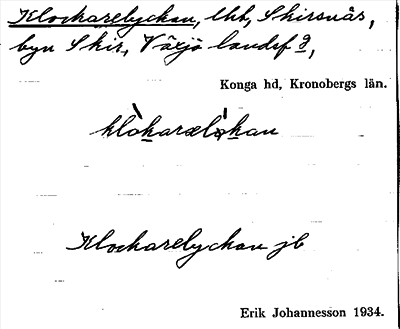 Klockarelyckan, lht, Skirsnäs,
byn Skir, Växjö landsf 9,
Konga hd, Kronobergs län.
klòkaræl kan
Klockarelyckan jb
Erik Johannesson 1934.